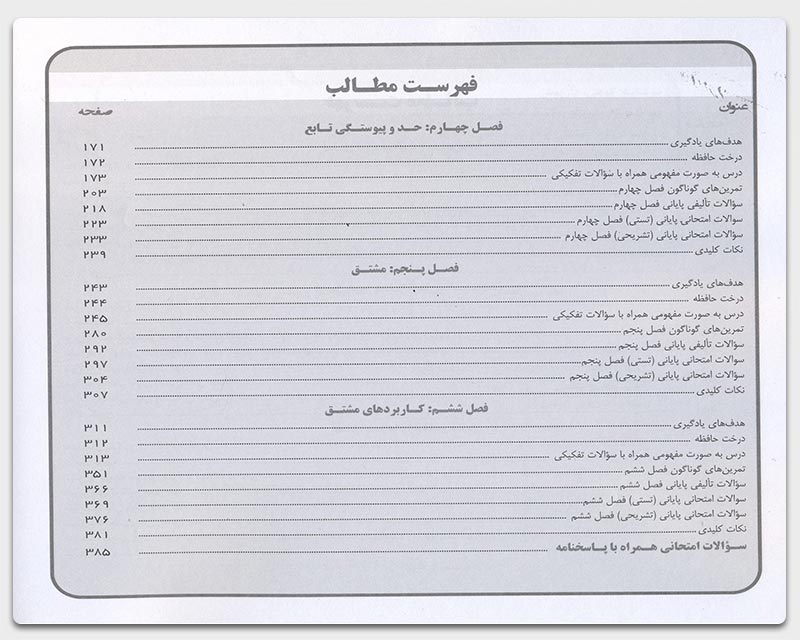 فهرست مطالب
عنوان صفحه
فصل چهارم: حد و پیوستگی تابع
هدف‌های یادگیری ۱۷۱
درخت حافظه ۱۷۲
درس به صورت مفهومی همراه با سؤالات تفکیکی ۱۷۳
تمرین‌های گوناگون فصل چهارم ۲۰۳
سؤالات تألیفی پایانی فصل چهارم ۲۱۸
سوالات امتحانی پایانی (تستی) فصل چهارم ۲۲۳
سؤالات امتحانی پایانی (تشریحی) فصل چهارم ۲۳۳
نکات کلیدی ۲۳۹
فصل پنجم: مشتق
هدف‌های یادگیری ۲۴۳
درخت حافظه ۲۴۴
درس به صورت مفهومی همراه با سؤالات تفکیکی ۲۴۵
تمرین‌های گوناگون فصل پنجم ۲۸۰
سؤالات تألیفی پایانی فصل پنجم ۲۹۲
سوالات امتحانی پایانی (تستی) فصل پنجم ۲۹۷
سؤالات امتحانی پایانی (تشریحی) فصل پنجم ۳۰۴
نکات کلیدی ۳۰۷
فصل ششم: کاربردهای مشتق
هدف‌های یادگیری ۳۱۱
درخت حافظه ۳۱۲
درس به صورت مفهومی همراه با سؤالات تفکیکی ۳۱۳
تمرین‌های گوناگون فصل ششم ۳۵۱
سؤالات تألیفی پایانی فصل ششم ۳۶۶
سوالات امتحانی پایانی (تستی) فصل ششم ۳۶۹
سؤالات امتحانی پایانی (تشریحی) فصل ششم ۳۷۶
نکات کلیدی ۳۸۱
سؤالات امتحانی همراه با پاسخنامه ۳۸۵